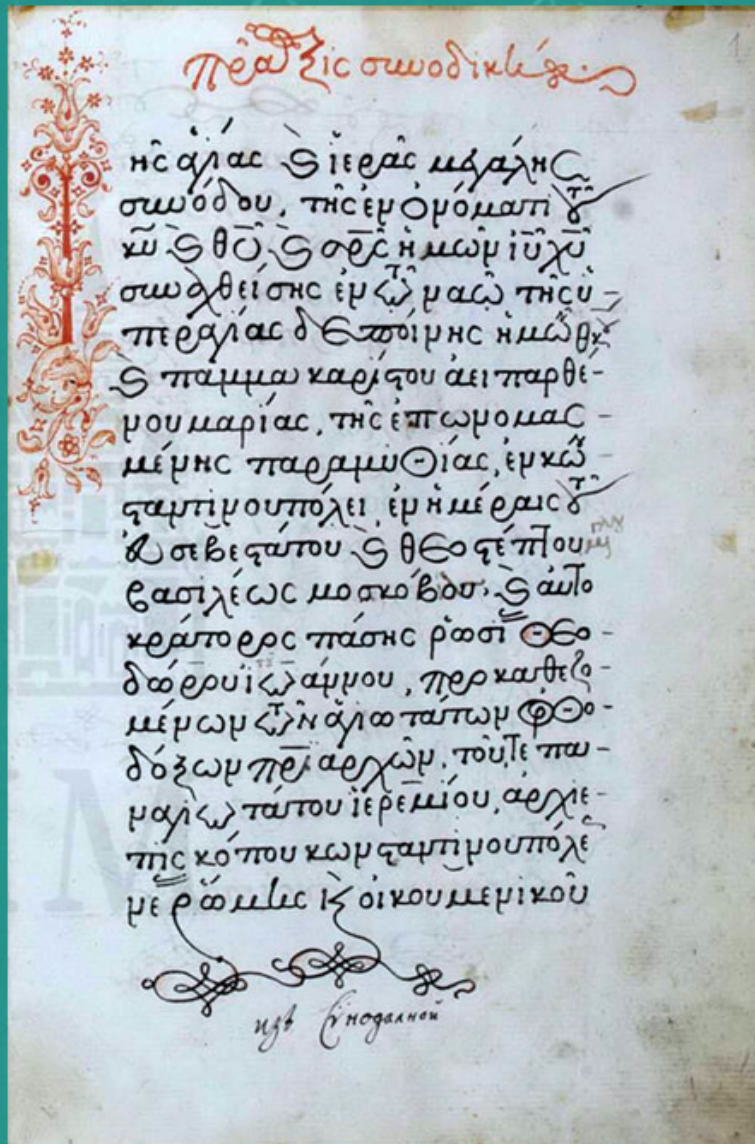 πρᾶξις συνοδική
ης ἁγίας καὶ ἱερᾶς μεγάλης
συνόδου, τῆς ἐν ὀνόματι τοῦ
κυ καὶ θυ καὶ σρς ἡμῶν ιυ χυ
συναχθείσης ἐν τῶ ναῶ τῆς ὑ-
περαγίας δεσποίνης ἡμῶν θκου
καὶ παμμακαρίστου ἀειπαρθέ-
νου μαρίας, τῆς ἐπωνομασ-
μένης παραμυθίας, ἐν κων
σταντινουπόλει ἐν ἡμέραις τοῦ
εὐσεβεστάτου καὶ θεοστέπτου
βασιλέως μοσκόβου, καὶ αὐτο
κράτορος πάσης ῥωσί θεο-
δώρου ἰωάννου, προκαθεζο
μένων τῶν ἁγιωτάτων ὀρθο-
δόξων πριαρχῶν, τοῦ τε πα-
ναγιωτάτου ἱερεμίου, ἀρχιε-
πισκόπου κωνσταντινουπόλε
νέ ῥώμης καὶ οἰκουμενικοῦ
изъ Сѵнодалной
1